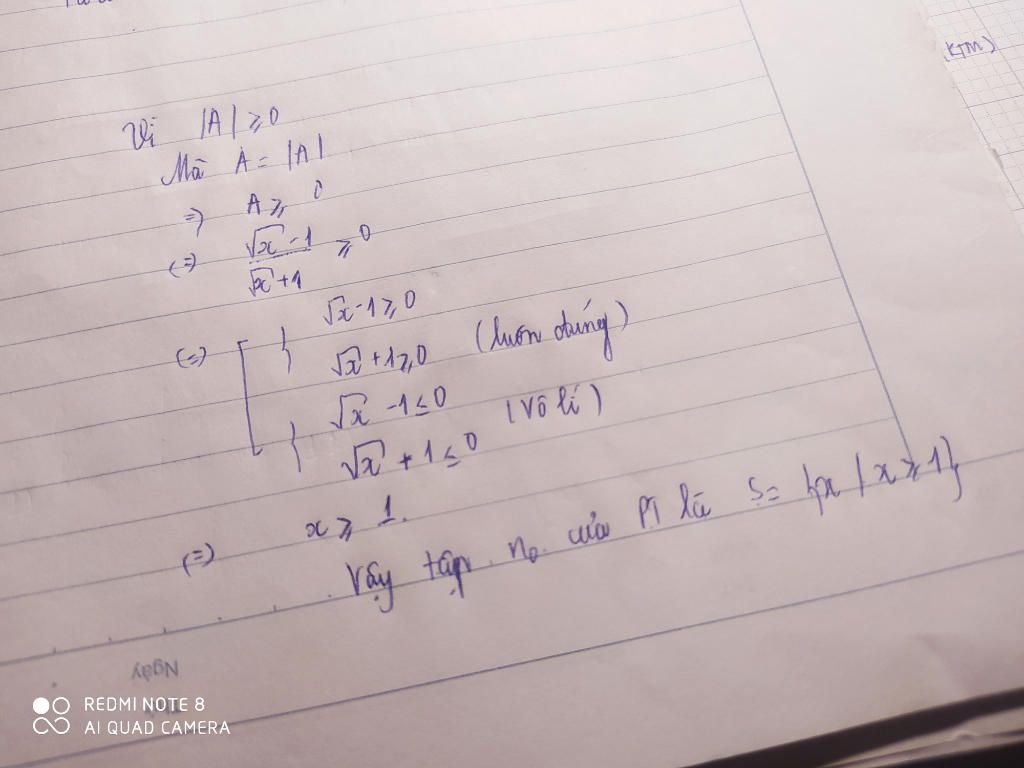 (KTM)
Vì |A| ≥ 0
Mà A = |A|
=> A ≥ 0
(=) √x - 1 / √x + 1 ≥ 0
(=) [ { √x - 1 ≥ 0
√x + 1 ≥ 0 (luôn đúng)
{ √x - 1 ≤ 0
√x + 1 ≤ 0 (Vô lí)
(=) x ≥ 1.
Vậy tập no của PT là S = {x / x ≥ 1}
Ngày
REDMI NOTE 8
AI QUAD CAMERA